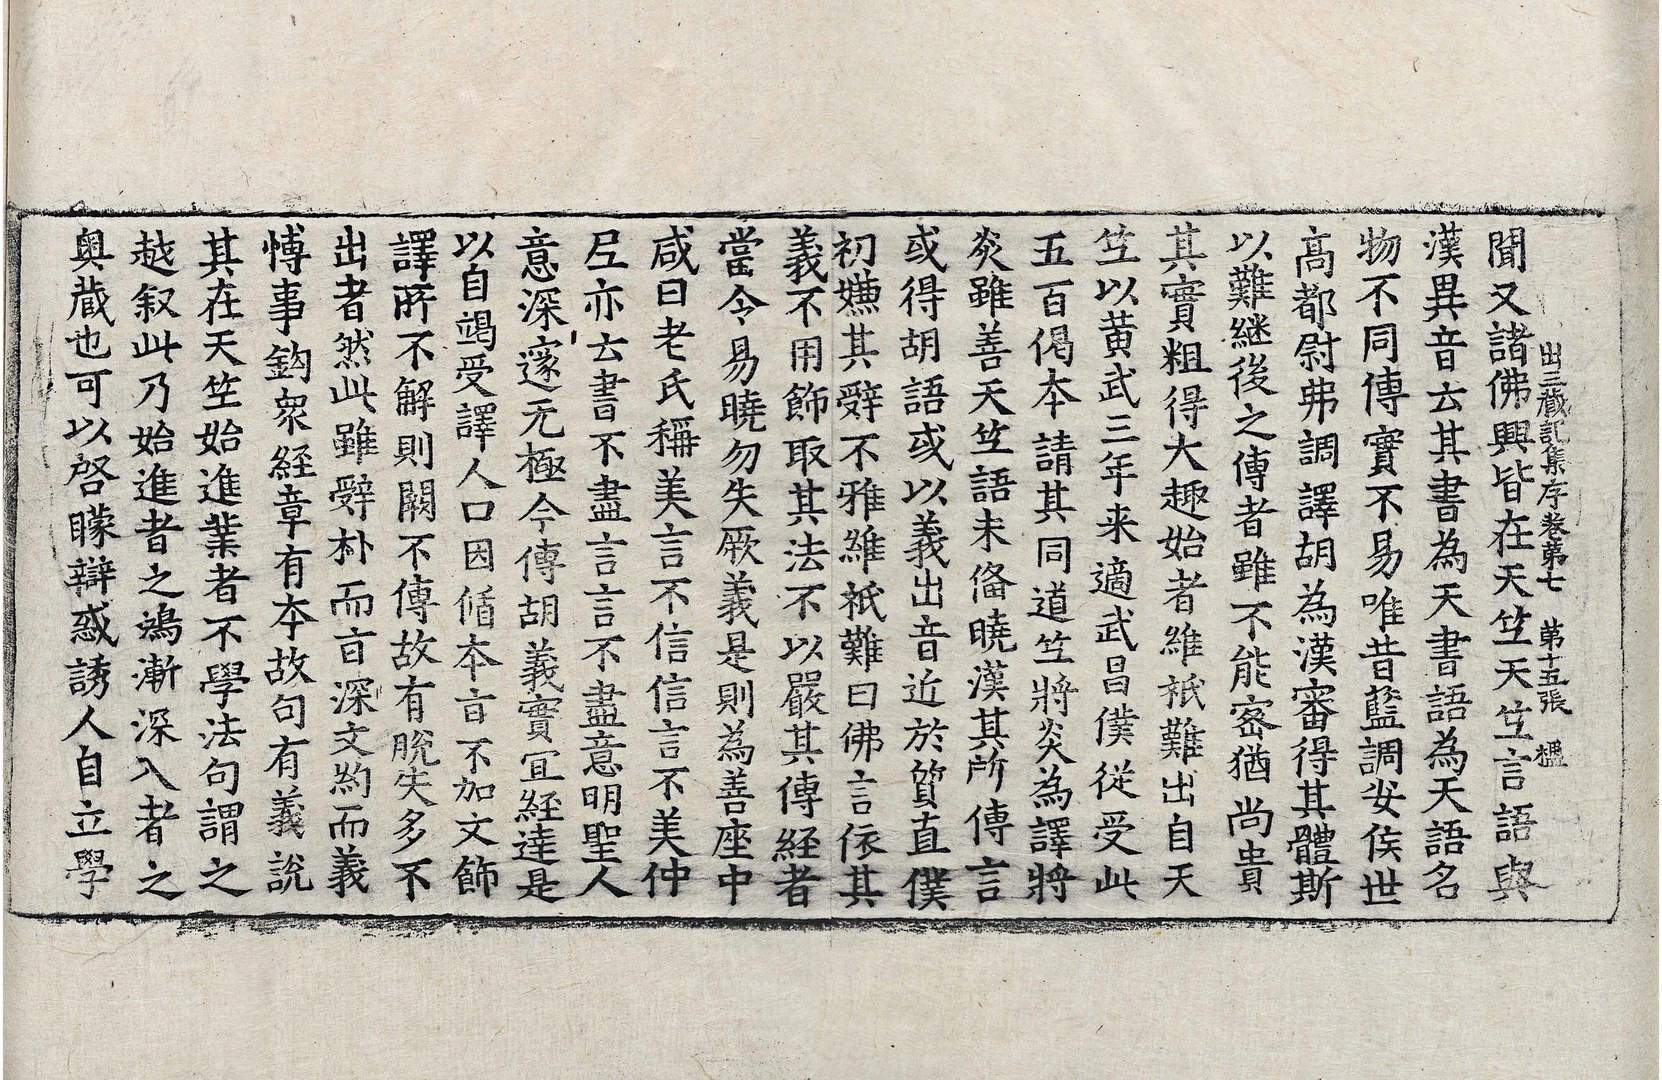 出三藏記集序卷第七　第十五張　榲
聞又諸佛興皆在天竺天竺言語與
漢異音云其書為天書語為天語名
物不同傳實不易唯昔藍調安侯世
髙都尉弗調譯胡為漢審得其體斯
以難継後之傳者雖不能密猶尚貴
其實粗得大趣始者維祇難出自天
竺以黄武三年来適武昌僕從受此
五百偈本請其同道竺將炎為譯將
炎雖善天竺語未俻曉漢其所傳言
或得胡語或以義出音近於質直僕
初嫌其辝不雅維祇難曰佛言依其
義不用飾取其法不以嚴其傳経者
當令易曉勿失厥義是則為善座中
咸曰老氏稱美言不信信言不美仲
尼亦云書不盡言言不盡意明聖人
意深邃无極今傳胡義實冝経達是
以自竭受譯人口因脩本㫖不加文飾
譯所不解則闕不傳故有脫失多不
出者然此雖辝朴而㫖深文約而義
愽事鈎衆経章有本故句有義說
其在天竺始進業者不學法句謂之
越叙此乃始進者之鴻漸深入者之
奥藏也可以啓矇辯惑誘人自立學